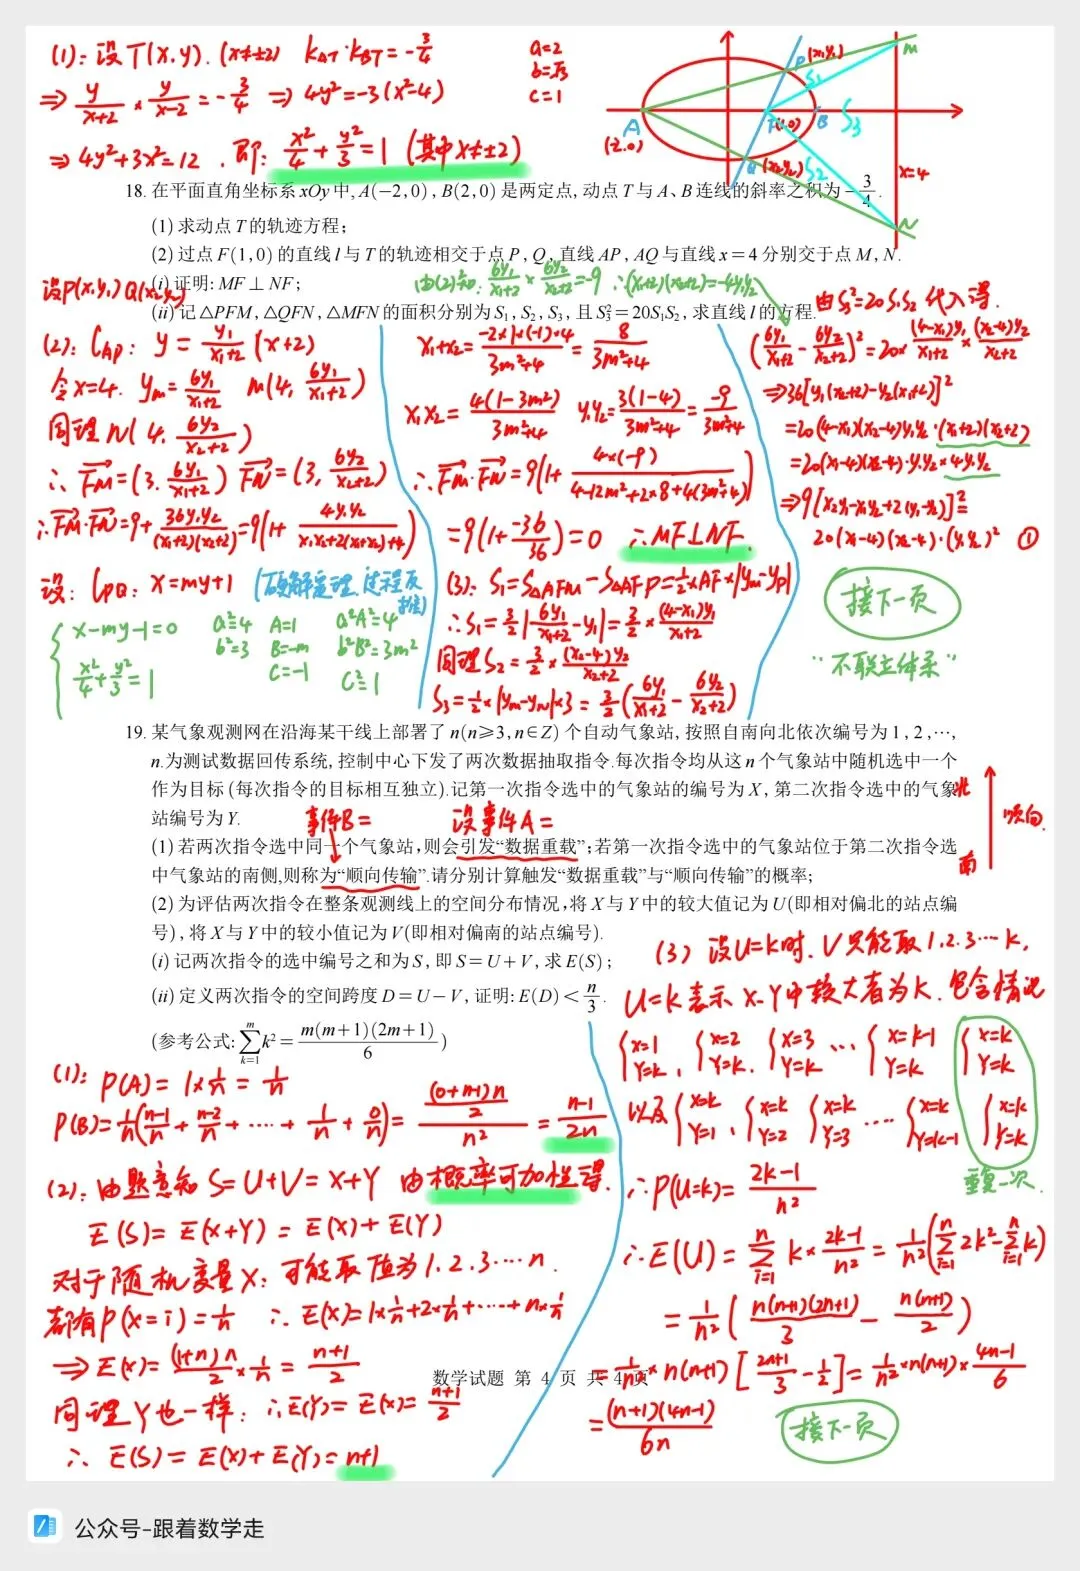 (1): 设T(x.y). (x≠±2) k_AT·k_BT=-3/4
⇒ y/(x+2) × y/(x-2) = -3/4 ⇒ 4y²=-3(x²-4)
⇒ 4y²+3x²=12. 即: x²/4+y²/3=1 (其中x≠±2)
a=2
b=√3
c=1
P (x₁y₁)
M
S₁
A
(-2.0)
F(1.0)
B
S₃
Q (x₂y₂)
S₂
x=4
N
18. 在平面直角坐标系xOy中, A(-2,0), B(2,0)是两定点, 动点T与A、B连线的斜率之积为-3/4.
(1) 求动点T的轨迹方程;
(2) 过点F(1,0)的直线l与T的轨迹相交于点P, Q, 直线AP, AQ与直线x=4分别交于点M, N.
(i) 证明: MF⊥NF;
(ii) 记△PFM, △QFN, △MFN的面积分别为S₁, S₂, S₃, 且S₃²=20S₁S₂, 求直线l的方程.
由(2)知: 6y₁/(x₁+2) × 6y₂/(x₂+2) =-9 ∴(x₁+2)(x₂+2)=-4y₁y₂
设P(x₁y₁) Q(x₂y₂)
(2): l_AP: y = y₁/(x₁+2) (x+2)
令x=4. y_M = 6y₁/(x₁+2) M(4, 6y₁/(x₁+2))
同理N(4, 6y₂/(x₂+2))
∴ FM=(3. 6y₁/(x₁+2)) FN=(3, 6y₂/(x₂+2))
∴FM·FN=9+36y₁y₂/((x₁+2)(x₂+2))=9(1+4y₁y₂/(x₁x₂+2(x₁+x₂)+4))
设: l_PQ: x=my+1 (硬解定理. 过程及
x-my-1=0
x²/4+y²/3=1
a²=4 A=1 a²A²=4
b²=3 B=-m b²B²=3m²
C=-1 C²=1
x₁+x₂= -2×1×(-1)×4/(3m²+4) = 8/(3m²+4)
x₁x₂= 4(1-3m²)/(3m²+4) y₁y₂= 3(1-4)/(3m²+4) = -9/(3m²+4)
∴FM·FN=9(1+ 4×(-9)/(4-12m²+2×8+4(3m²+4)))
=9(1+ -36/36)=0 ∴MF⊥NF.
(3): S₁=S△AFM-S△AFP=½×AF×|y_M-y_P|
∴S₁=3/2|6y₁/(x₁+2)-y₁|=3/2×(4-x₁)y₁/(x₁+2)
同理S₂=3/2×(x₂-4)y₂/(x₂+2)
S₃=½×|y_M-y_N|×3=3/2(6y₁/(x₁+2)-6y₂/(x₂+2))
由S₃²=20S₁S₂ 代入得.
(6y₁/(x₁+2)-6y₂/(x₂+2))²=20×(4-x₁)y₁/(x₁+2)×(x₂-4)y₂/(x₂+2)
⇒36[y₁(x₂+2)-y₂(x₁+2)]²
=20(4-x₁)(x₂-4)y₁y₂·(x₁+2)(x₂+2)
=20(x₁-4)(x₂-4)·y₁y₂×4y₁y₂
⇒9[x₂y₁-x₁y₂+2(y₁-y₂)]²=
20(x₁-4)(x₂-4)·(y₁y₂)² ①
接下一页
“不联立体系”
19. 某气象观测网在沿海某干线上部署了n(n⩾3, n∈Z)个自动气象站, 按照自南向北依次编号为1, 2, ⋯,
n.为测试数据回传系统, 控制中心下发了两次数据抽取指令.每次指令均从这n个气象站中随机选中一个
作为目标(每次指令的目标相互独立).记第一次指令选中的气象站的编号为X, 第二次指令选中的气象
站编号为Y.
事件B= 设事件A=
北
顺向.
南
(1) 若两次指令选中同一个气象站, 则会引发“数据重载”; 若第一次指令选中的气象站位于第二次指令选
中气象站的南侧, 则称为“顺向传输”.请分别计算触发“数据重载”与“顺向传输”的概率;
(2) 为评估两次指令在整条观测线上的空间分布情况, 将X与Y中的较大值记为U(即相对偏北的站点编
号), 将X与Y中的较小值记为V(即相对偏南的站点编号).
(i) 记两次指令的选中编号之和为S, 即S=U+V, 求E(S);
(ii) 定义两次指令的空间跨度D=U-V, 证明: E(D)<n/3.
(参考公式: ∑_{k=1}^{m} k²= m(m+1)(2m+1)/6)
(1): P(A)=1×1/n=1/n
P(B)=1/n((n-1)/n+(n-2)/n+⋯+1/n+0/n)= ((0+n-1)n/2)/n² = (n-1)/2n
(2): 由题意知 S=U+V=X+Y 由概率可加性得.
E(S)=E(X+Y)=E(X)+E(Y)
对于随机变量X: 可能取值为1.2.3⋯n.
都有P(X=i)=1/n ∴E(X)=1×1/n+2×1/n+⋯+n×1/n
⇒E(X)=(1+n)n/2×1/n=(n+1)/2
同理Y也一样: ∴E(Y)=E(X)=(n+1)/2
∴ E(S)=E(X)+E(Y)=n+1
(3) 设U=k时. V只能取1.2.3⋯k,
U=k表示X.Y中较大者为k. 包含情况
{x=1 Y=k, {x=2 Y=k. {x=3 Y=k ⋯ {x=k-1 Y=k {x=k Y=k
以及{x=k Y=1, {x=k Y=2 {x=k Y=3 ⋯ {x=k Y=k-1 {x=k Y=k
重复一次.
∴P(U=k)=(2k-1)/n²
∴E(U)=∑_{i=1}^{n} k×(2k-1)/n²=1/n²(∑_{i=1}^{n}2k²-∑_{i=1}^{n}k)
=1/n²(n(n+1)(2n+1)/3-n(n+1)/2)
=1/n²×n(n+1)[(2n+1)/3-1/2]=1/n²×n(n+1)×(4n-1)/6
=(n+1)(4n-1)/6n
接下一页
数学试题 第 4 页 共 4 页
公众号-跟着数学走